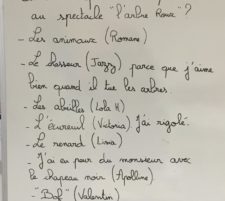 au spectacle "l'arbre Roux"?
- Les animaux (Romane)
- Le chasseur (Jazzy) parce que j'aime
bien quand il tue les arbres.
- Les abeilles (Lola H)
- L'écureuil (Victoria) J'ai rigolé.
- Le renard (Lina)
- J'ai eu peur du monsieur avec
le chapeau noir (Apolline)
- "Bof" (Valentin)